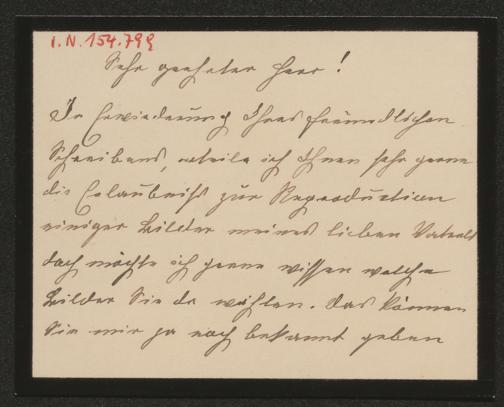 I.N. 154.799
Sehr geehrter Herr!
In Erwiederung Ihres freundlichen
Schreibens, erteile ich Ihnen sehr gerne
die Erlaubniß zur Reproduction
einiger Bilder meines lieben Vaters
doch möchte ich gerne wissen welche
Bilder Sie da wählen. Das können
Sie mir ja noch bekannt geben